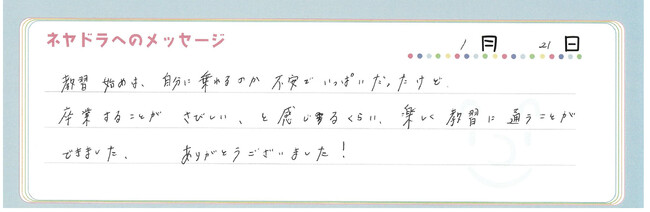 ネヤドラへのメッセージ
1月 21日
教習始めは、自分に乗れるのか不安でいっぱいだったけど
卒業することがさびしい、と感じるくらい、楽しく教習に通うことが
できました。 ありがとうございました!